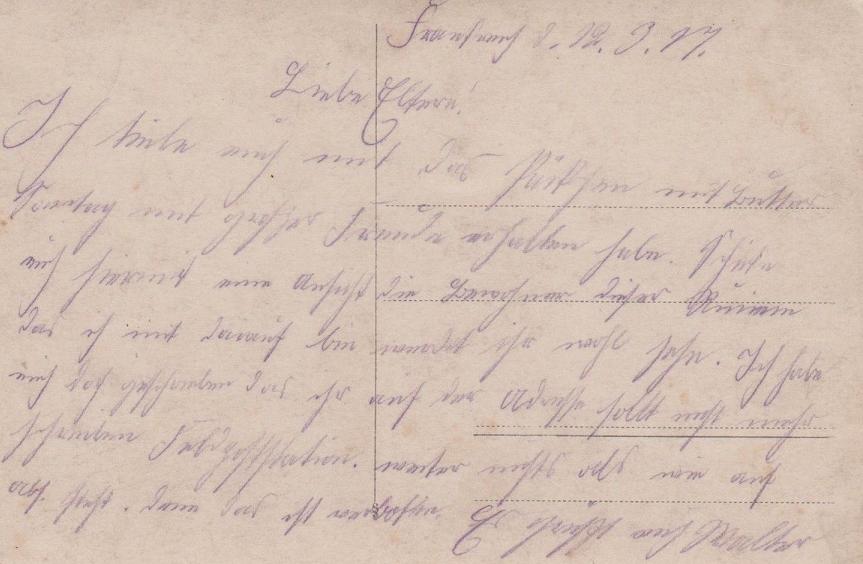 Frankreich d. 12. 3. 17.
Liebe Eltern!
Ich teile euch mit das Päckchen mit Butter
Sonntag mit großer Freude erhalten habe. Schicke
euch hiermit eine Ansicht die Bewohner dieser Ruinen
das ich mit darauf bin werdet ihr wohl sehn. Ich habe
euch doch geschrieben das ihr auf der Adresse sollt nicht mehr
schreiben Feldpoststation. weiter nichts als wie auf
abs. steht. denn das ist verboten.
Es grüßt euer Sohn Walter